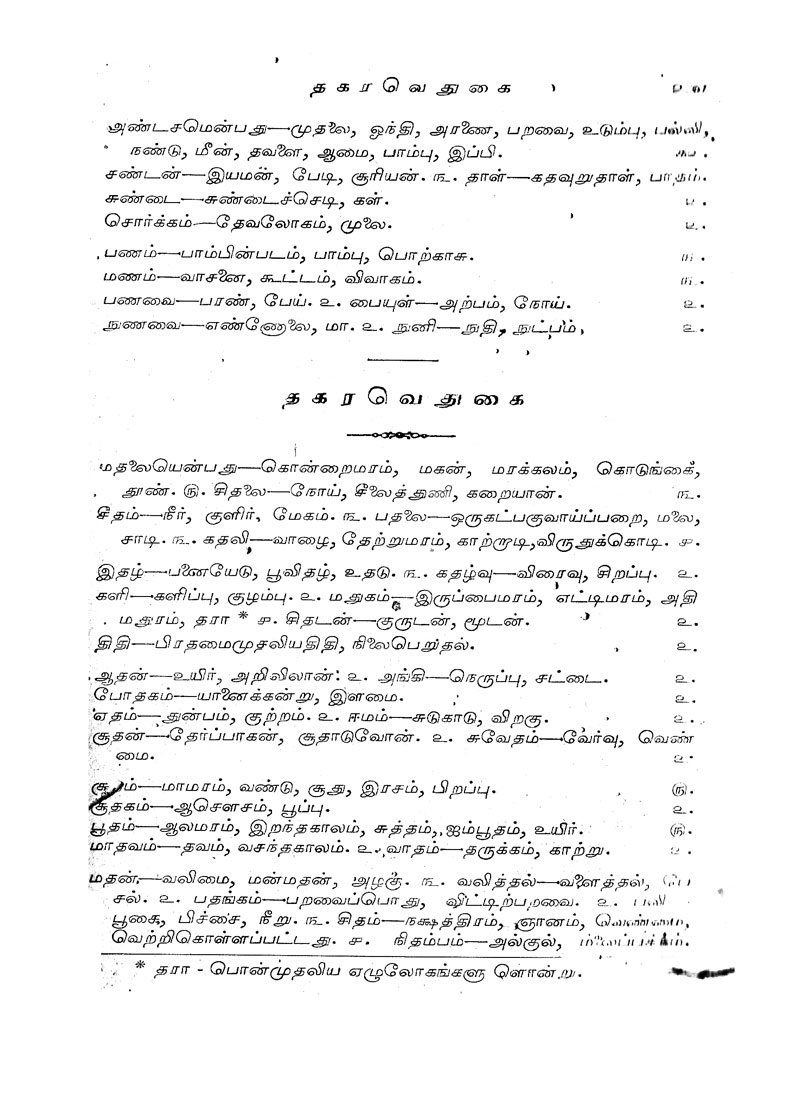 தகரவெதுகை
அண்டசமென்பது—முதலை, ஓந்தி, அரணை, பறவை, உடும்பு, பல்லி,
நண்டு, மீன், தவளை, ஆமை, பாம்பு, இப்பி.
சண்டன்—இயமன், பேடி, சூரியன். ௩. தாள்—கதவுறுதாள், பாதம்.
சுண்டை—சுண்டைச்செடி, கள். ௨.
சொர்க்கம்—தேவலோகம், முலை. ௨.
பணம்—பாம்பின்படம், பாம்பு, பொற்காசு. ௩.
மணம்—வாசனை, கூட்டம், விவாகம். ௩.
பணவை—பரண், பேய். ௨. பையுள்—அற்பம், நோய். ௨.
நுணவை—எண்ணோலை, மா. ௨. நுனி—நுதி, நுட்பம், ௨.
தகரவெதுகை
மதலையென்பது—கொன்றைமரம், மகன், மரக்கலம், கொடுங்கை,
தூண். ௫. சிதலை—நோய், சீலைத்துணி, கறையான். ௩.
சீதம்—நீர், குளிர், மேகம். ௩. பதலை—ஒருகட்பகுவாய்ப்பறை, மலை,
சாடி. ௩. கதலி—வாழை, தேற்றுமரம், காற்றாடி,விருதுக்கொடி. ௪.
இதழ்—பனையேடு, பூவிதழ், உதடு. ௩. கதழ்வு—விரைவு, சிறப்பு. ௨.
களி—களிப்பு, குழம்பு. ௨. மதுகம்—இருப்பைமரம், எட்டிமரம், அதி
மதுரம், தரா * ௪. சிதடன்—குருடன், மூடன். ௨.
திதி—பிரதமைமுதலியதிதி, நிலைபெறுதல். ௨.
ஆதன்—உயிர், அறிவிலான். ௨. அங்கி—நெருப்பு, சட்டை. ௨.
போதகம்—யானைக்கன்று, இளமை. ௨.
ஏதம்—துன்பம், குற்றம். ௨. ஈமம்—சுடுகாடு, விறகு. ௨.
சூதன்—தேர்ப்பாகன், சூதாடுவோன். ௨. சுவேதம்—வேர்வு, வெண்
மை. ௨.
சூதம்—மாமரம், வண்டு, சூது, இரசம், பிறப்பு. ௫.
சூதகம்—ஆசௌசம், பூப்பு. ௨.
பூதம்—ஆலமரம், இறந்தகாலம், சுத்தம், ஐம்பூதம், உயிர். ௫.
மாதவம்—தவம், வசந்தகாலம். ௨. வாதம்—தருக்கம், காற்று. ௨.
மதன்—வலிமை, மன்மதன், அழகு. ௩. வலித்தல்—வளைத்தல், பே
சல். ௨. பதங்கம்—பறவைப்பொது, விட்டிற்பறவை. ௨. பலி
பூசை, பிச்சை, நீறு. ௩. சிதம்—நக்ஷத்திரம், ஞானம், வெண்மை,
வெற்றிகொள்ளப்பட்டது. ௪. நிதம்பம்—அல்குல்,
* தரா - பொன்முதலிய ஏழுலோகங்களு ளொன்று.